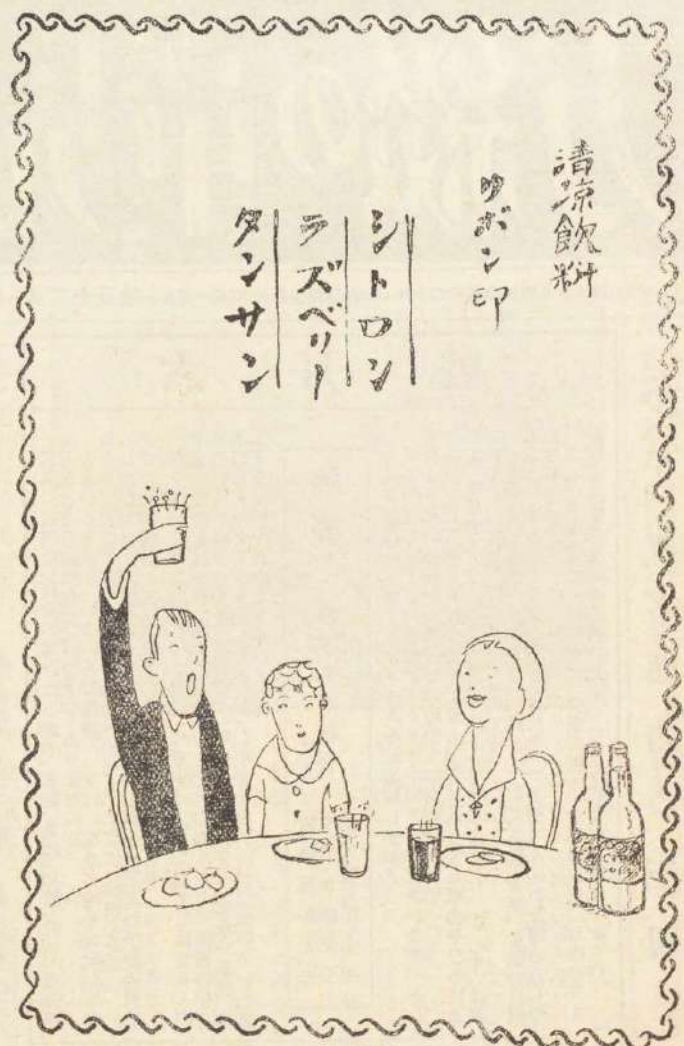 清涼飲料
リボン印
シトロン
ラズベリー
タンサン